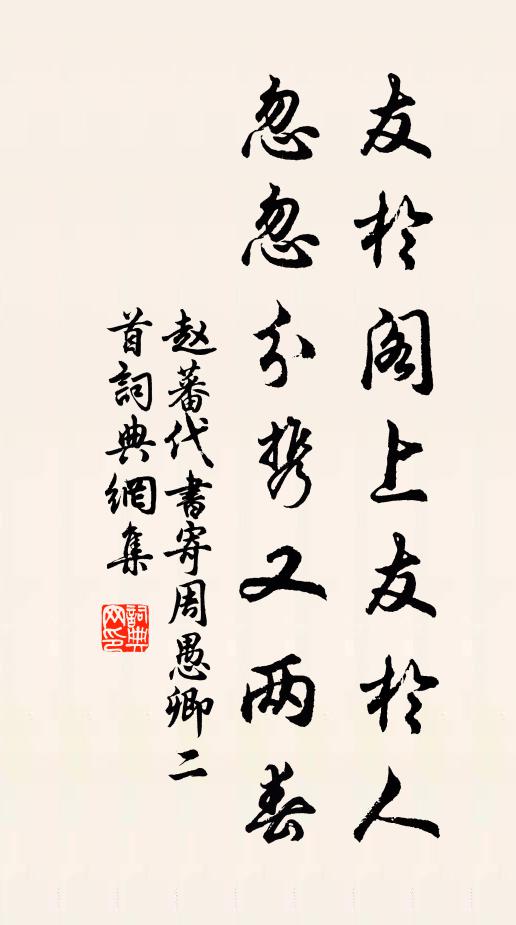 友於阁上友於人
忽忽分携又两春
赵蕃代书寄周愚卿二
首詞典網集
詞典
网印